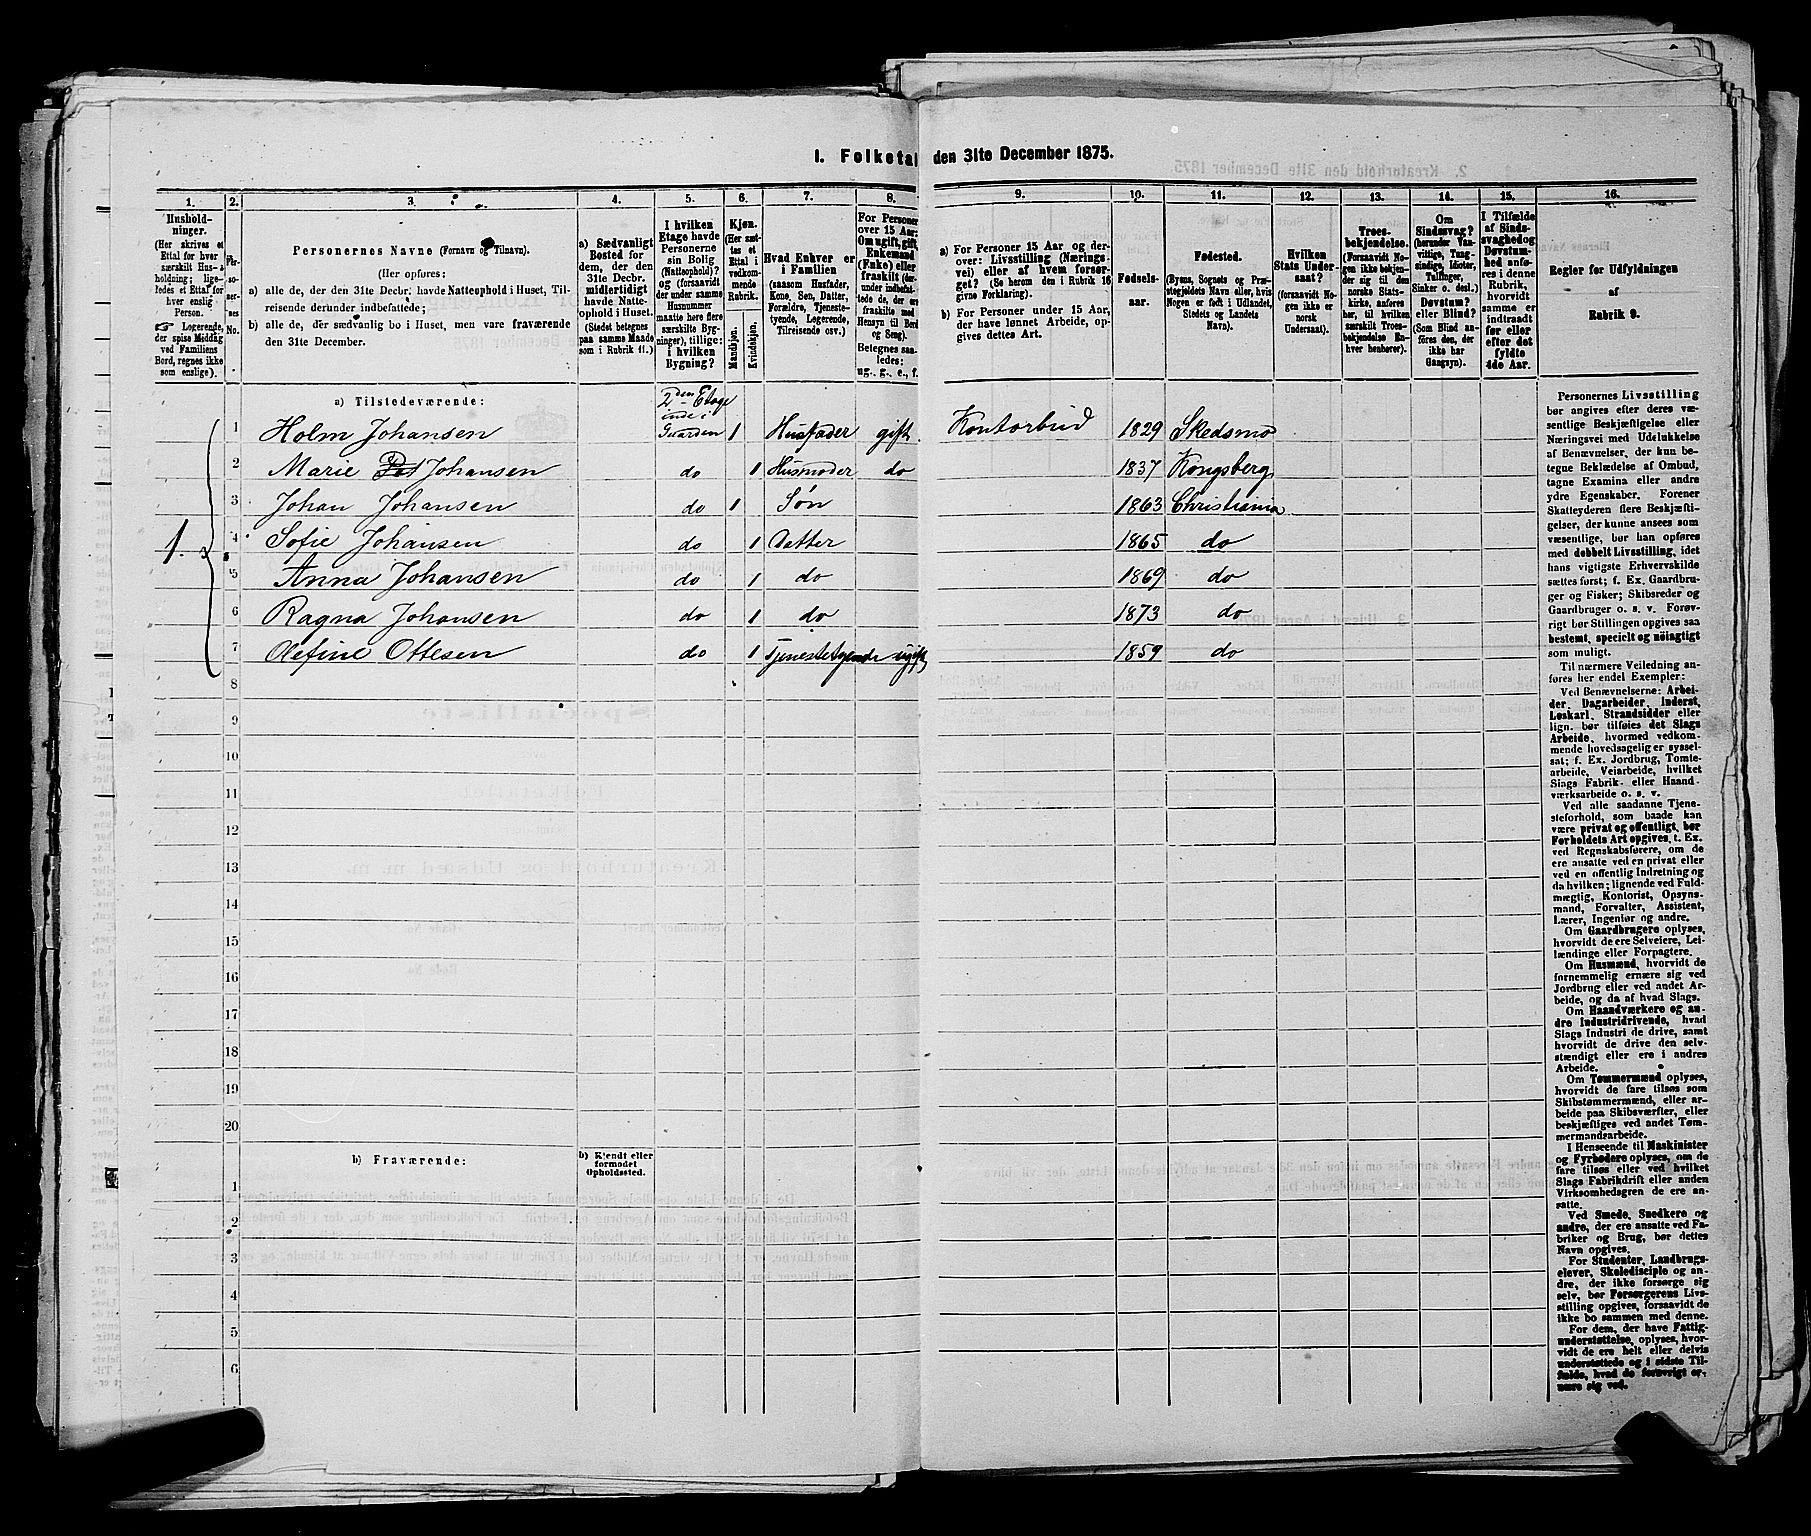 1. Folketal den 31te December 1875.
1. 2. 3. 4. 5. 6. 7. 8. 9. 10. 11. 12. 13. 14. 15. 16.
Hushold-
ninger.
(Her skrives et
Ettal for hver
særskilt Hus-
holdning; lige-
ledes et Ettal for
hver enslig
Person.
☞ Logerende,
der spise Middag
ved Familiens
Bord, regnes ikke
som enslige).
Per-
so-
ner-
nes
No.
Personernes Navne (Fornavn og Tilnavn).
(Her opføres:
a) alle de, der den 31te Decbr. havde Natteophold i Huset, Til-
reisende derunder indbefattede;
b) alle de, der sædvanlig bo i Huset, men vare fraværende
den 31te December.
a) Sædvanligt
Bosted for
dem, der den
31te Decbr.
midlertidigt
havde Natte-
ophold i Huset.
(Stedet betegnes
paa samme Maade
som i Rubrik 11.)
I hvilken
Etage havde
Personerne
sin Bolig
(Natteophold)?
og (forsaavidt
der under samme
Husnummer
maatte høre flere
særskilte Byg-
ninger), tillige:
i hvilken
Bygning?
Kjøn.
(Her sæt-
tes et
Ettal i
vedkom-
mende
Rubrik.
Mandkjøn.
Kvindekjøn.
Hvad Enhver er
i Familien
(saasom Husfader,
Kone, Søn, Datter,
Forældre, Tjeneste-
tyende, Logerende,
Tilreisende osv.)
For Personer
over 15 Aar:
Om ugift, gift,
Enkemand
(Enke) eller
fraskilt
Betegnes saa-
ledes:
ug., g., e., f.
a) For Personer 15 Aar og der-
over: Livsstilling (Nærings-
vei) eller af hvem forsør-
get? (Se herom den i Rubrik 16
givne Forklaring).
b) For Personer under 15 Aar,
der have lønnet Arbeide, op-
gives dettes Art.
Fødsels-
aar.
Fødested.
(Byens, Sognets og Præ-
stegjeldets Navn eller, hvis
Nogen er født i Udlandet,
Stedets og Landets
Navn).
Hvilken
Stats Under-
saat?
(forsaavidt No-
gen ikke er
norsk
Undersaat).
Troes-
bekjendelse.
(Forsaavidt No-
gen ikke bekjen-
der sig til den
norske Stats-
kirke, anføres
her, til hvilken
særskilt Troes-
bekjendelse En-
hver henhører).
Om
Sindssvag?
(herunder Van-
vittige, Tung-
sindige, Idioter,
Tullinger,
Sinker o. desl.)
Døvstum?
eller Blind?
(Som Blind an-
føres den, der
ikke har
Gangsyn).
I Tilfælde
af Sinds-
svaghed og
Døvstum-
hed anfø-
res i denne
Rubrik,
hvorvidt
samme er
indtraadt
før eller
efter det
fyldte
4de Aar.
Regler for Udfyldningen
af
Rubrik 9.
a) Tilstedeværende:
2den Etage
inde i
1 Holm Johansen Gaarden 1 Husfader gift. Kontorbud 1829 Skedsmo
2 Marie Johansen do 1 Husmoder do 1837 Kongsberg
3 Johan Johansen do 1 Søn 1863 Christiania
1. 4 Sofie Johansen do 1 Datter 1865 do
5 Anna Johansen do 1 do 1869 do
6 Ragna Johansen do 1 do 1873 do
7 Olefine Ottesen do 1 Tjenestetyende ugift 1859 do
8
9
10
11
12
13
14
15
16
17
18
19
20
b) Fraværende:
b) Kjendt eller
formodet
Opholdssted.
1
2
3
4
5
6
Personernes Livsstilling
bør angives efter deres væ-
sentlige Beskjæftigelse eller
Næringsvei med Udelukkelse
af Benævnelser, der kun be-
tegne Beklædelse af Ombud,
tagne Examina eller andre
ydre Egenskaber. Forener
Skatteyderen flere Beskjæfti-
gelser, der kunne ansees som
væsentlige, bør han opføres
med dobbelt Livsstilling, idet
hans vigtigste Erhvervskilde
sættes først; f. Ex. Gaardbru-
ger og Fisker; Skibsreder og
Gaardbruger o. s. v. Forøv-
rigt bør Stillingen opgives saa
bestemt, specielt og nøiagtigt
som muligt.
Til nærmere Veiledning an-
føres her endel Exempler:
Ved Benævnelserne: Arbei-
der, Dagarbeider, Inderst,
Løskarl, Strandsidder eller
lign. bør tilføies det Slags
Arbeide, hvormed vedkom-
mende hovedsagelig er syssel-
sat; f. Ex. Jordbrug, Tomte-
arbeide, Veiarbeide, hvilket
Slags Fabrik- eller Haand-
værksarbeide o. s. v.
Ved alle saadanne Tjene-
steforhold, som baade kan
være privat og offentligt, bør
Forholdets Art opgives, t. Ex.
ved Regnskabsførere, om de
ere ansatte ved en privat eller
ved en offentlig Indretning og
da hvilken; lignende ved Fuld-
mægtig, Kontorist, Opsyns-
mand, Forvalter, Assistent,
Lærer, Ingeniør og andre.
Om Gaardbrugere oplyses,
hvorvidt de ere Selveiere, Lei-
lændinge eller Forpagtere.
Om Husmænd, hvorvidt de
fornemmelig ernære sig ved
Jordbrug eller ved andet Ar-
beide, og da af hvad Slags.
Om Haandværkere og an-
dre Industridrivende, hvad
Slags Industri de drive, samt
hvorvidt de drive den selv-
stændigt eller ere i andres
Arbeide.
Om Tømmermænd oplyses,
hvorvidt de fare tilsøs som
Skibstømmermænd, eller ar-
beide paa Skibsværfter, eller
beskjæftiges ved andet Tøm-
mermandsarbeide.
I Henseende til Maskinister
og Fyrbødere oplyses, om de
fare tilsøs eller ved hvilket
Slags Fabrikdrift eller anden
Virksomhedsgren de ere an-
satte.
Ved Smede, Snedkere og
andre, der ere ansatte ved Fa-
briker og Brug, bør dettes
Navn opgives.
For Studenter, Landbrugs-
elever, Skoledisciple og an-
dre, der ikke forsørge sig
selv, bør Forsørgerens Livs-
stilling opgives, forsaavidt de
ikke bo sammen med denne.
For dem, der have Fattig-
understøttelse, oplyses, hvor-
vidt de ere helt eller delvis
understøttede og i sidste Til-
fælde, hvad de forøvrigt er-
nære sig ved.